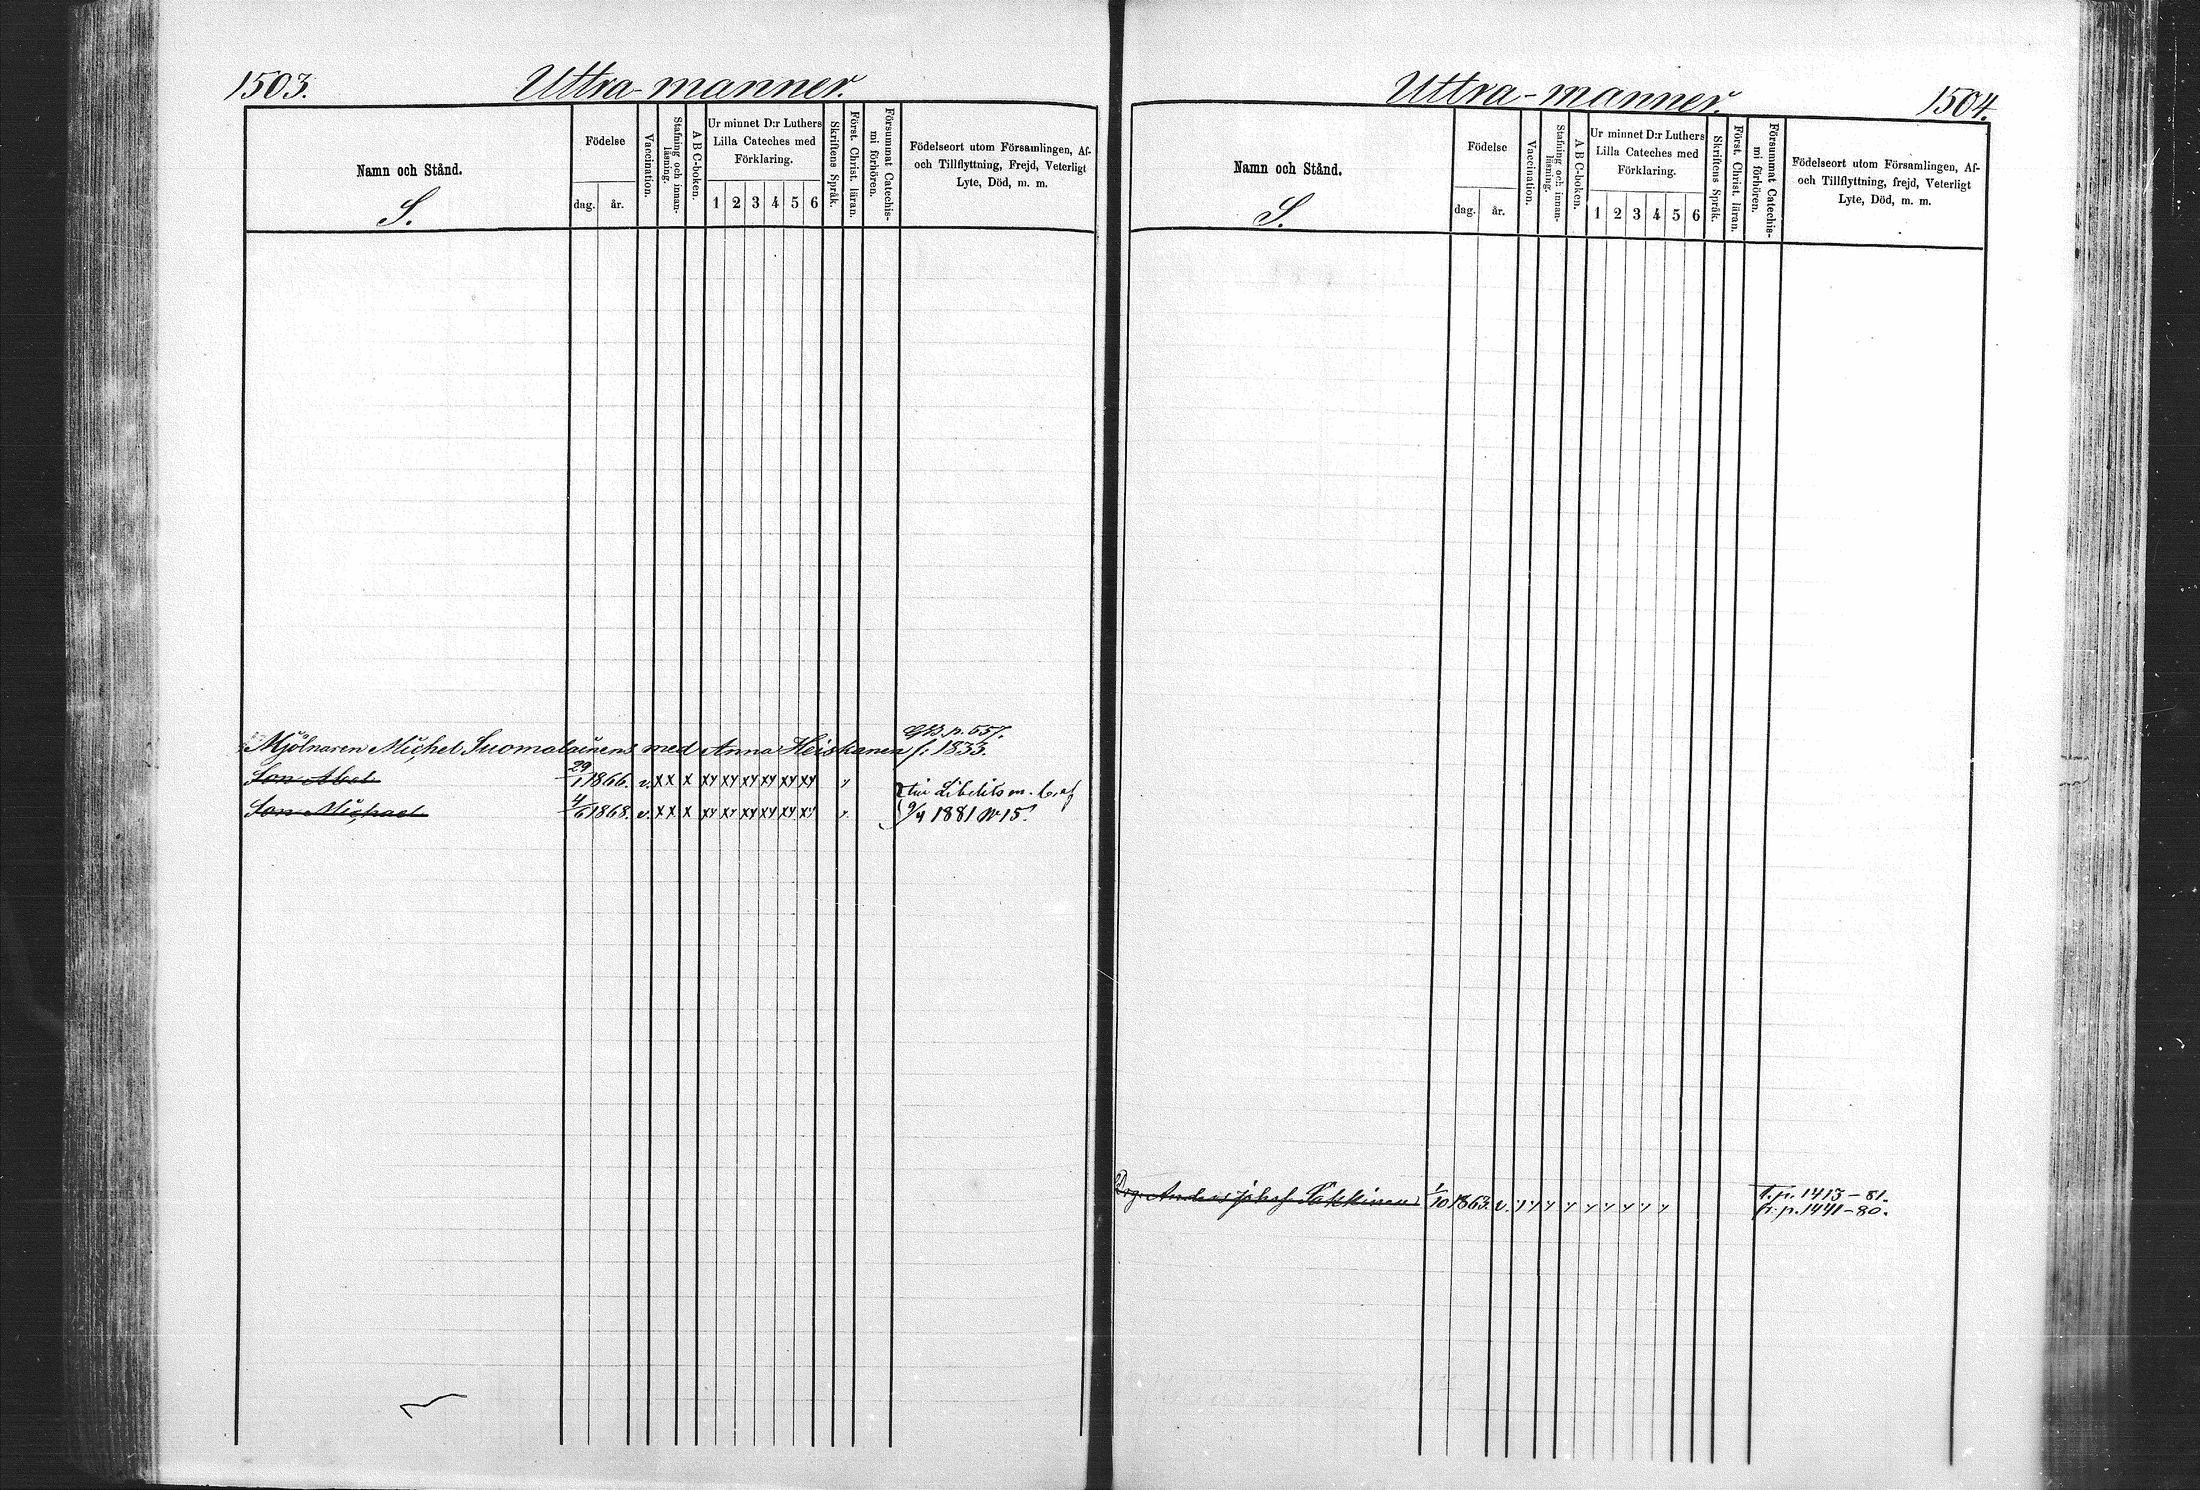 1503.
Uttra-manner.
Namn och Stånd.
S.
Födelse
dag. år.
Vaccination.
Stafning och innan-
läsning.
ABC-boken.
Ur minnet D:r Luthers
Lilla Cateches med
Förklaring.
1 2 3 4 5 6
Skriftens Språk.
Först. Christ. läran.
Försummat Catechis-
mi förhören.
Födelseort utom Församlingen, Af-
och Tillflyttning, Frejd, Veterligt
Lyte, Död, m. m.
p. 557.
Mjölnaren Michel Suomalainens med Anna Heiskanen f: 1833.
Son Abel 29/1 1866. v. x x x xy xy xy xy xy xy
Libelits m.
Son Michael 4/6 1868. v. x x x xy xy xy xy xy xy
9/4 1881 N 15.
Uttra-manner.
1504.
Namn och Stånd.
S.
Födelse
dag. år.
Vaccination.
Stafning och innan-
läsning.
ABC-boken.
Ur minnet D:r Luthers
Lilla Cateches med
Förklaring.
1 2 3 4 5 6
Skriftens Språk.
Först. Christ. läran.
Försummat Catechis-
mi förhören.
Födelseort utom Församlingen, Af-
och Tillflyttning, frejd, Veterligt
Lyte, Död, m. m.
1/10 1863. v.
t. p. 1413-81.
fr. p. 1441-80.